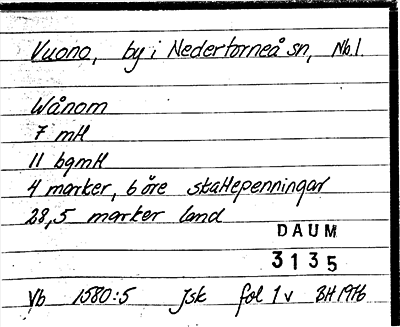 Vuono, by i Nedertorneå sn, Nb.l.
Wånom
7 mtl
11 bgmtl
4 marker, 6 öre skattepenningar
28,5 marker land
DAUM
3135
Vb 1580:5 Jsk fol 1v BH 1976